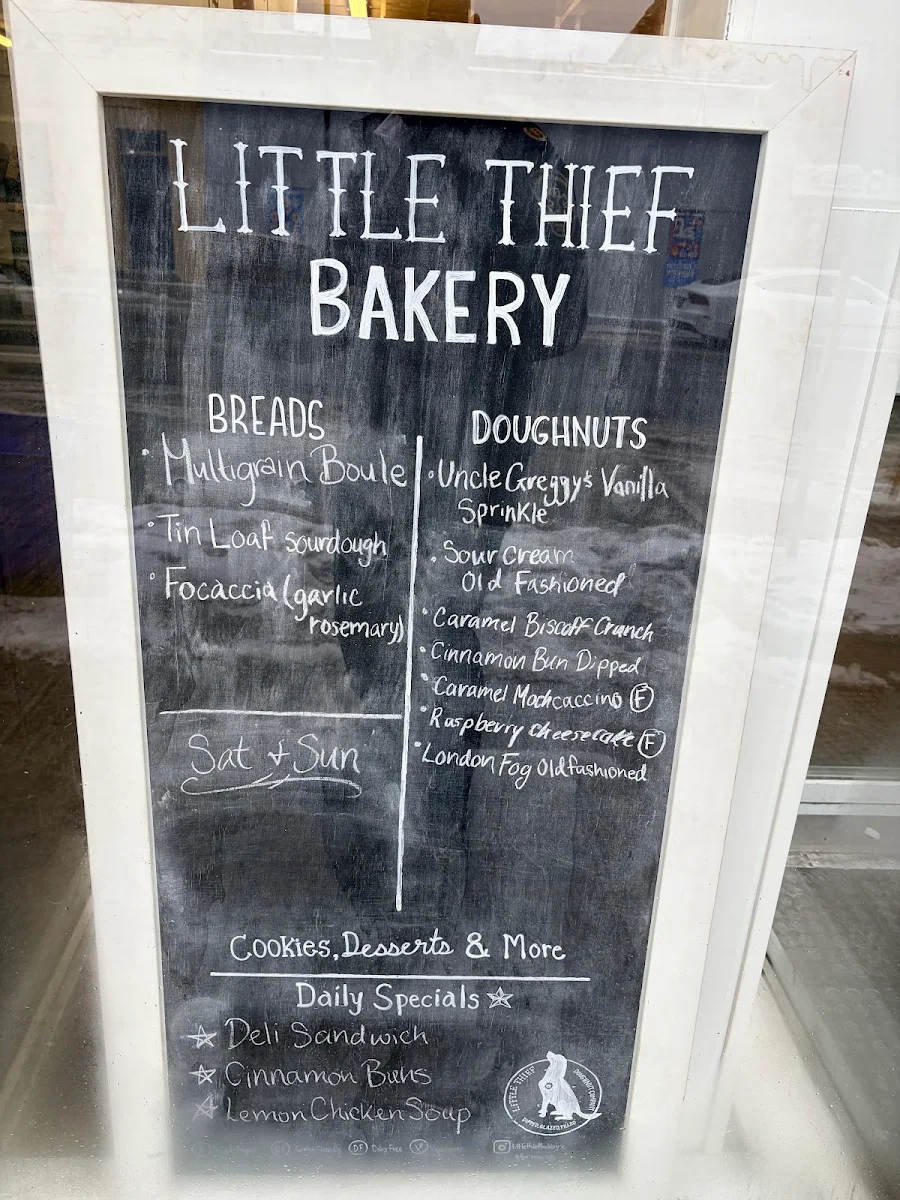 LITTLE THIEF
BAKERY
BREADS
• Multigrain Boule
• Tin Loaf sourdough
• Focaccia (garlic
rosemary)
Sat & Sun
DOUGHNUTS
• Uncle Greggy's Vanilla
Sprinkle
• Sour Cream
Old Fashioned
• Caramel Biscoff Crunch
• Cinnamon Bun Dipped
• Caramel Mochaccino Ⓕ
• Raspberry cheesecake Ⓕ
• London Fog Old fashioned
Cookies, Desserts & More
Daily Specials ☆
☆ Deli Sandwich
☆ Cinnamon Buns
☆ Lemon Chicken Soup
LITTLE THIEF
DOUGHNUT COMPANY
DF Dairy Free